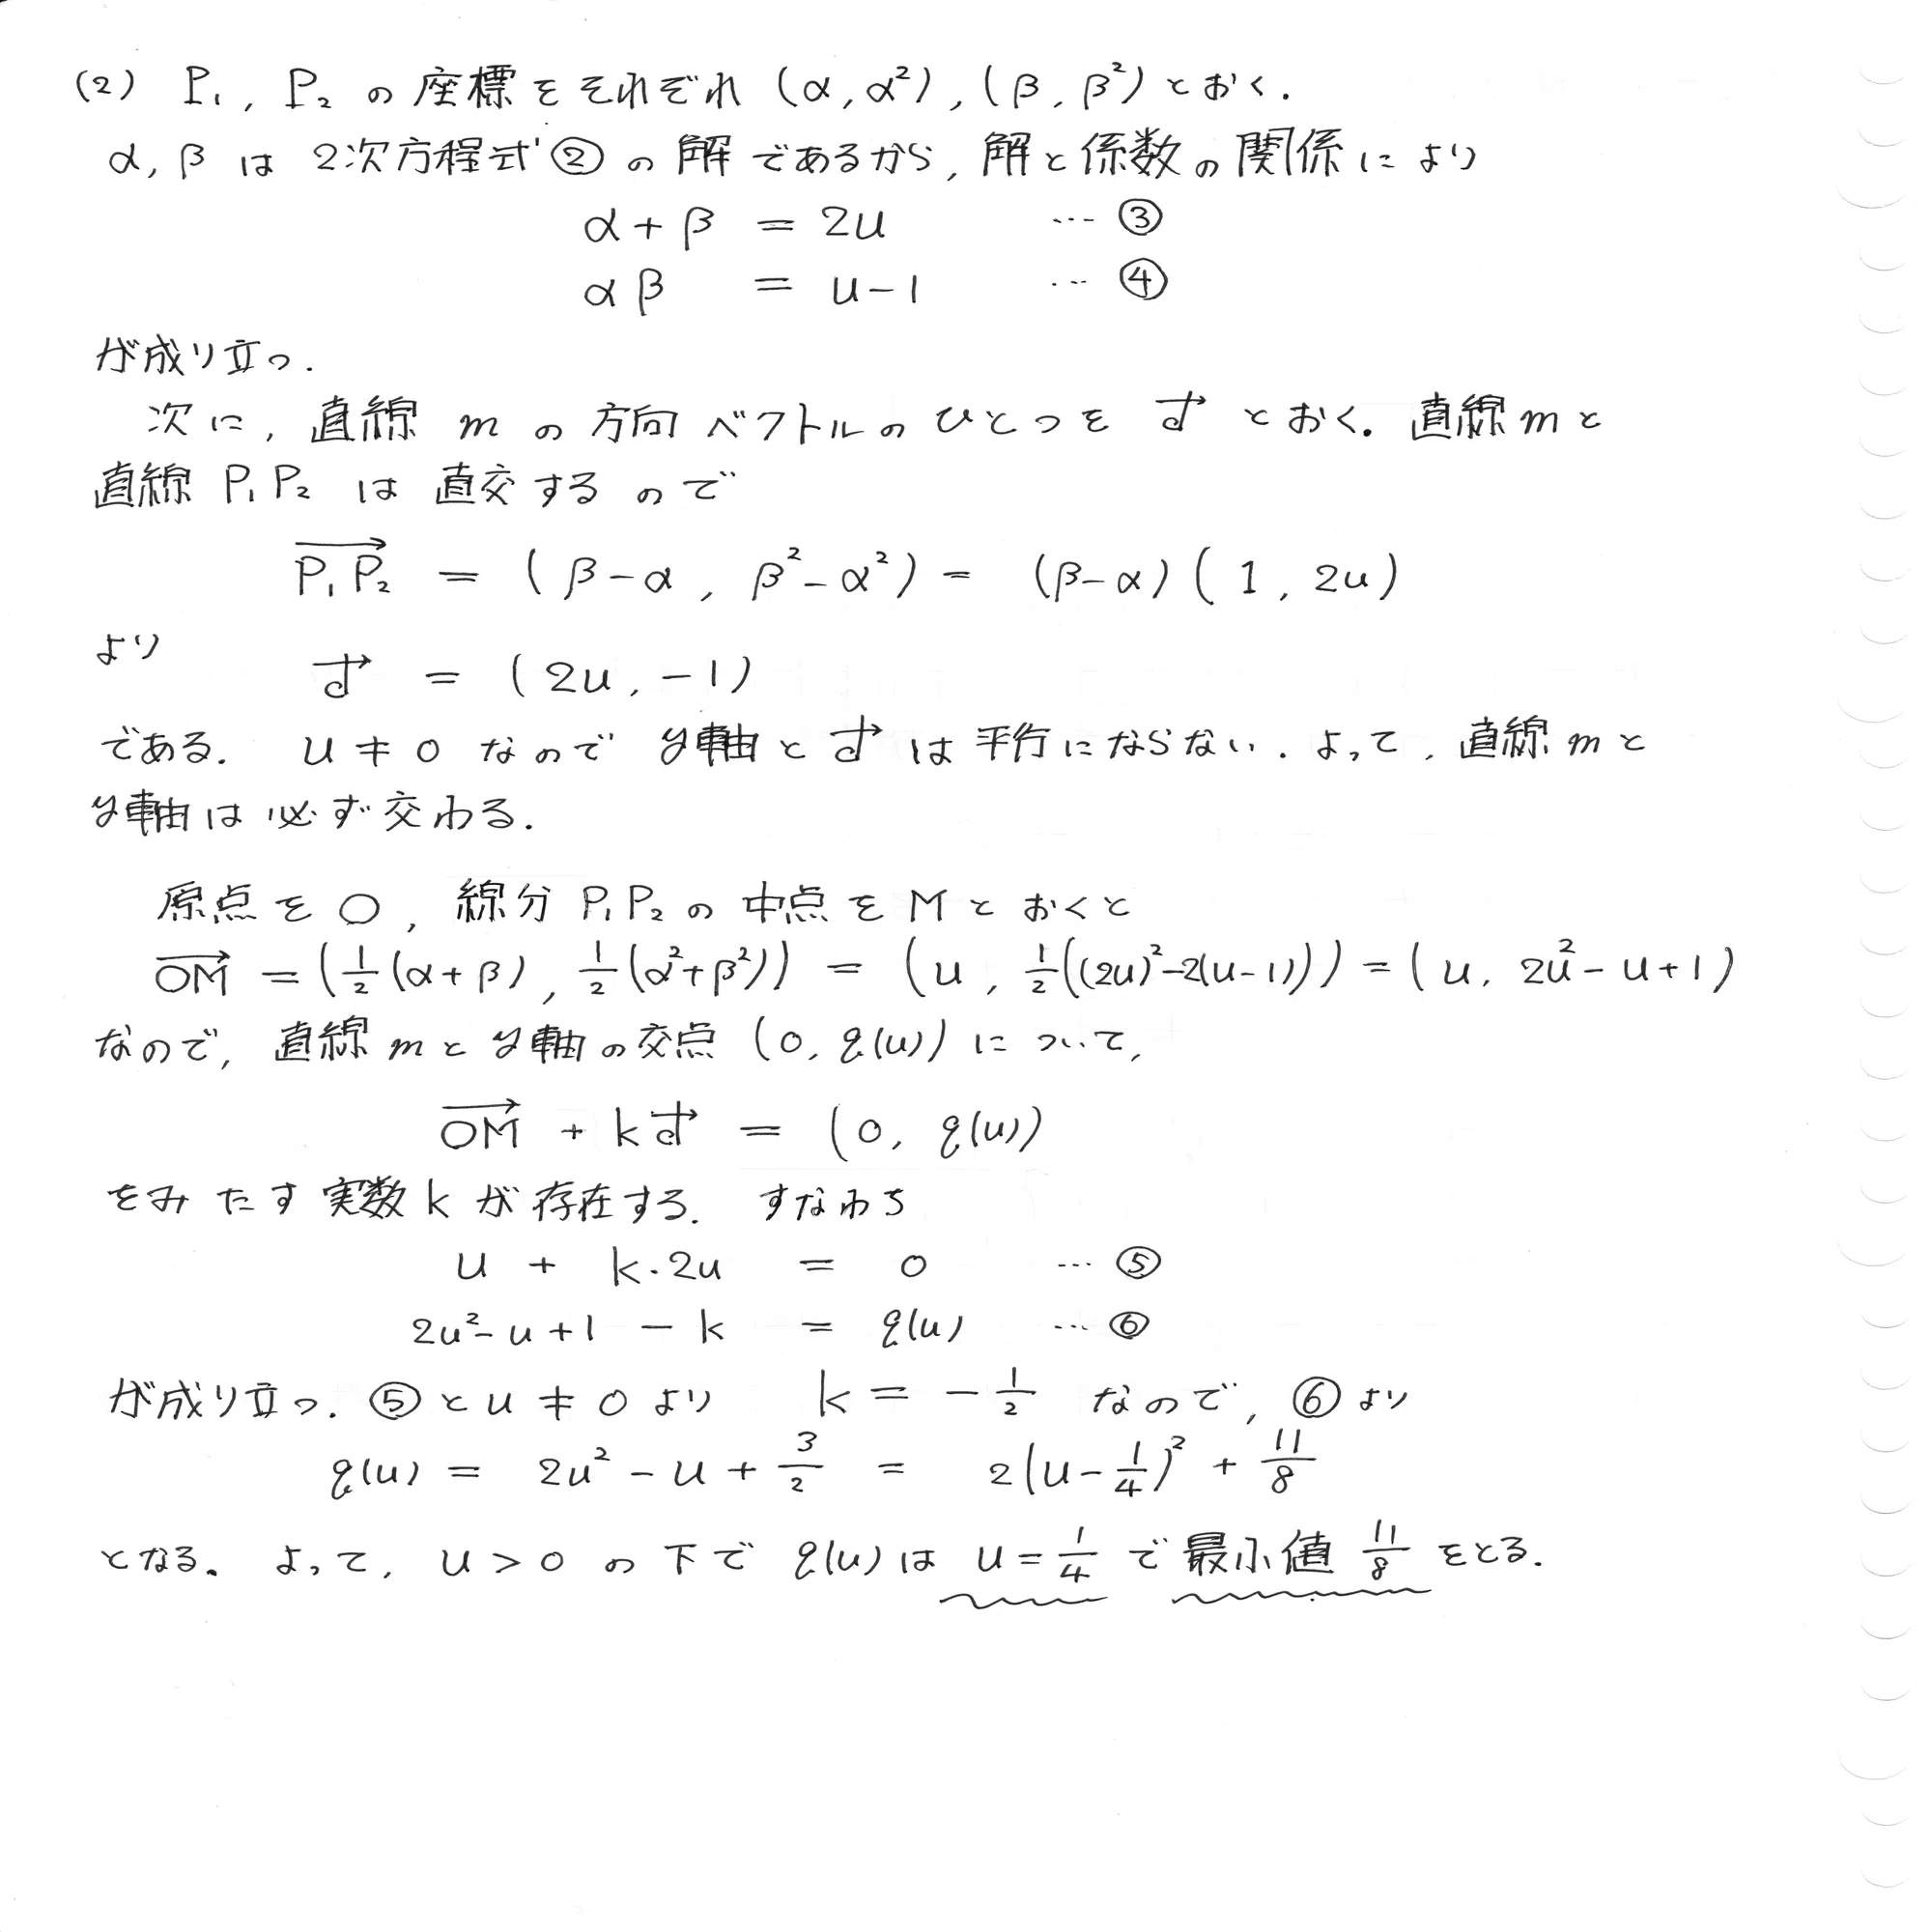 (2) P₁, P₂ の座標をそれぞれ (α, α²), (β, β²) とおく.
α, β は 2次方程式 ② の解であるから, 解と係数の関係により
α + β = 2u … ③
αβ = u - 1 … ④
が成り立つ.
次に, 直線 m の方向ベクトルのひとつを d→ とおく. 直線 m と
直線 P₁P₂ は直交するので
P₁P₂→ = (β-α, β²-α²) = (β-α)(1, 2u)
より
d→ = (2u, -1)
である. u ≠ 0 なので y軸と d→ は平行にならない. よって, 直線 m と
y軸は必ず交わる.
原点を O, 線分 P₁P₂ の中点を M とおくと
OM→ = (1/2(α+β), 1/2(α²+β²)) = (u, 1/2((2u)²-2(u-1))) = (u, 2u²-u+1)
なので, 直線 m と y軸の交点 (0, q(u)) について,
OM→ + kd→ = (0, q(u))
をみたす実数 k が存在する. すなわち
u + k·2u = 0 … ⑤
2u²-u+1 - k = q(u) … ⑥
が成り立つ. ⑤ と u ≠ 0 より k = -1/2 なので, ⑥ より
q(u) = 2u² - u + 3/2 = 2(u-1/4)² + 11/8
となる. よって, u > 0 の下で q(u) は u = 1/4 で最小値 11/8 をとる.